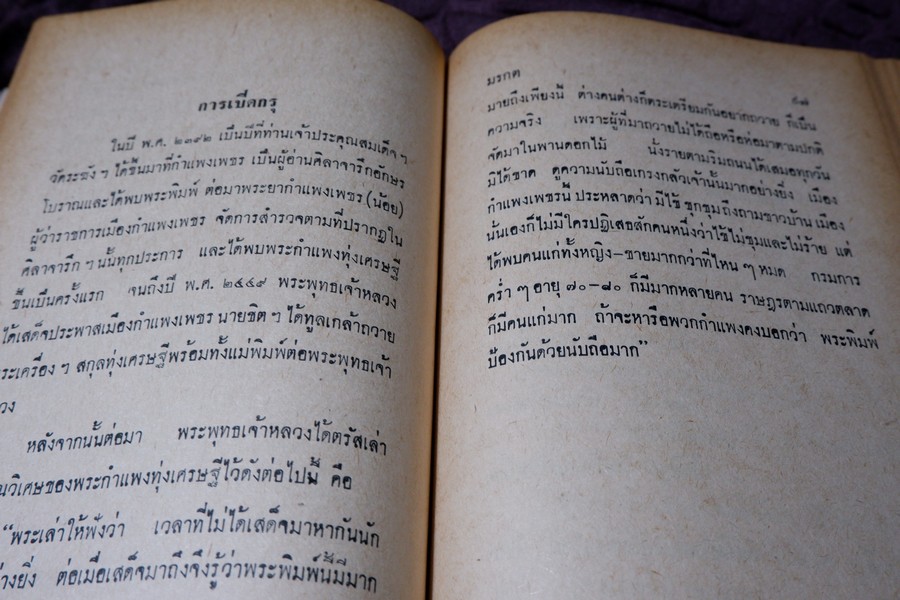 การเปิดกรุ
ในปี พ.ศ. ๒๓๙๒ เป็นปีที่ท่านเจ้าประคุณสมเด็จ ฯ
วัดระฆัง ฯ ได้ขึ้นมาที่กำแพงเพชร เป็นผู้อ่านศิลาจารึกอักษร
โบราณและได้พบพระพิมพ์ ต่อมาพระยากำแพงเพชร (น้อย)
ผู้ว่าราชการเมืองกำแพงเพชร จัดการสำรวจตามที่ปรากฏใน
ศิลาจารึก ฯ นั้นทุกประการ และได้พบพระกำแพงทุ่งเศรษฐี
ขึ้นเป็นครั้งแรก จนถึงปี พ.ศ. ๒๔๔๙ พระพุทธเจ้าหลวง
ได้เสด็จประพาสเมืองกำแพงเพชร นายชิต ฯ ได้ทูลเกล้าถวาย
ระเครื่อง ฯ สกุลทุ่งเศรษฐีพร้อมทั้งแม่พิมพ์ต่อพระพุทธเจ้า
วง
หลังจากนั้นต่อมา พระพุทธเจ้าหลวงได้ตรัสเล่า
นวิเศษของพระกำแพงทุ่งเศรษฐีไว้ดังต่อไปนี้ คือ
“พระเล่าให้ฟังว่า เวลาที่ไม่ได้เสด็จมาหากันนัก
ย่างยิ่ง ต่อเมื่อเสด็จมาถึงจึงรู้ว่าพระพิมพ์นี้มีมาก
มรกต
มายถึงเพียงนี้ ต่างคนต่างก็ตระเตรียมกันอยากถวาย ก็เป็น
ความจริง เพราะผู้ที่มาถวายไม่ได้ถือหรือห่อมาตามปกติ
จัดมาในพานดอกไม้ นั่งรายตามริมถนนได้เสมอทุกวัน
มิได้ขาด ดูความนับถือเกรงกลัวเจ้านั้นมากอย่างยิ่ง เมือง
กำแพงเพชรนี้ ประหลาดว่า มีไข้ ชุกชุม ถึงถามชาวบ้าน เมือง
นั้นเองก็ไม่มีใครปฏิเสธสักคนหนึ่งว่าไข้ไม่ชุมและไม่ร้าย แต่
ได้พบคนแก่ทั้งหญิง–ชายมากกว่าที่ไหน ๆ หมด กรมการ
คร่ำ ๆ อายุ ๗๐–๘๐ ก็มีมากหลายคน ราษฎรตามแถวตลาด
ก็มีคนแก่มาก ถ้าจะหารือพวกกำแพงคงบอกว่า พระพิมพ์
ป้องกันด้วยนับถือมาก”